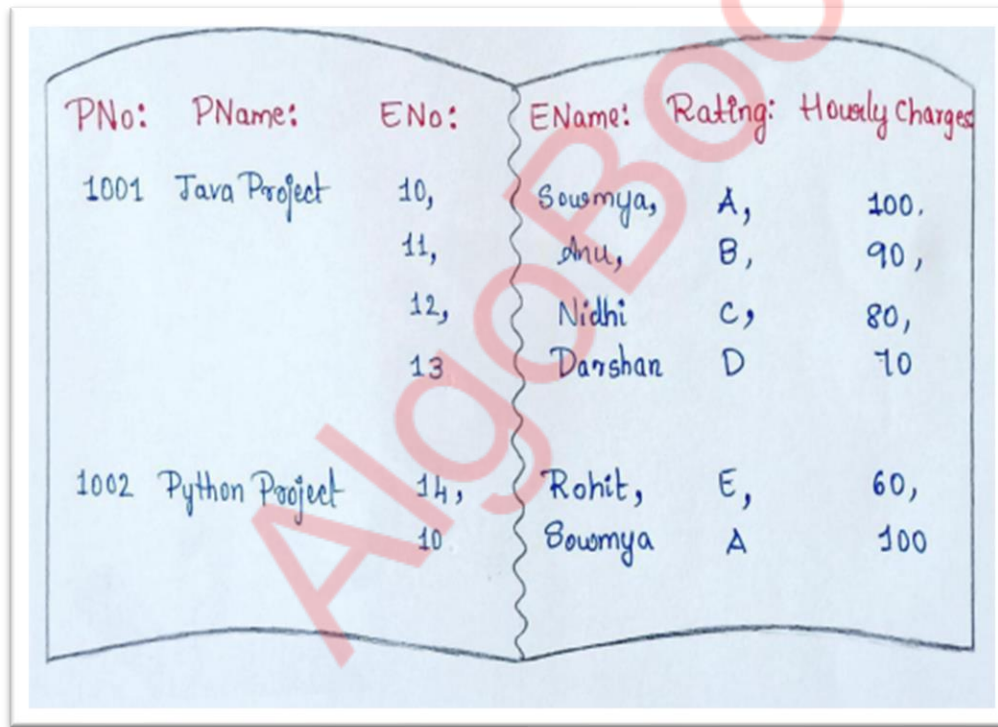 PNo: PName: ENo: EName: Rating: Hourly Charges
1001 Java Project 10, Sowmya, A, 100.
11, Anu, B, 90,
12, Nidhi C, 80,
13 Darshan D 70
1002 Python Project 14, Rohit, E, 60,
10 Sowmya A 100
AlgoBoo